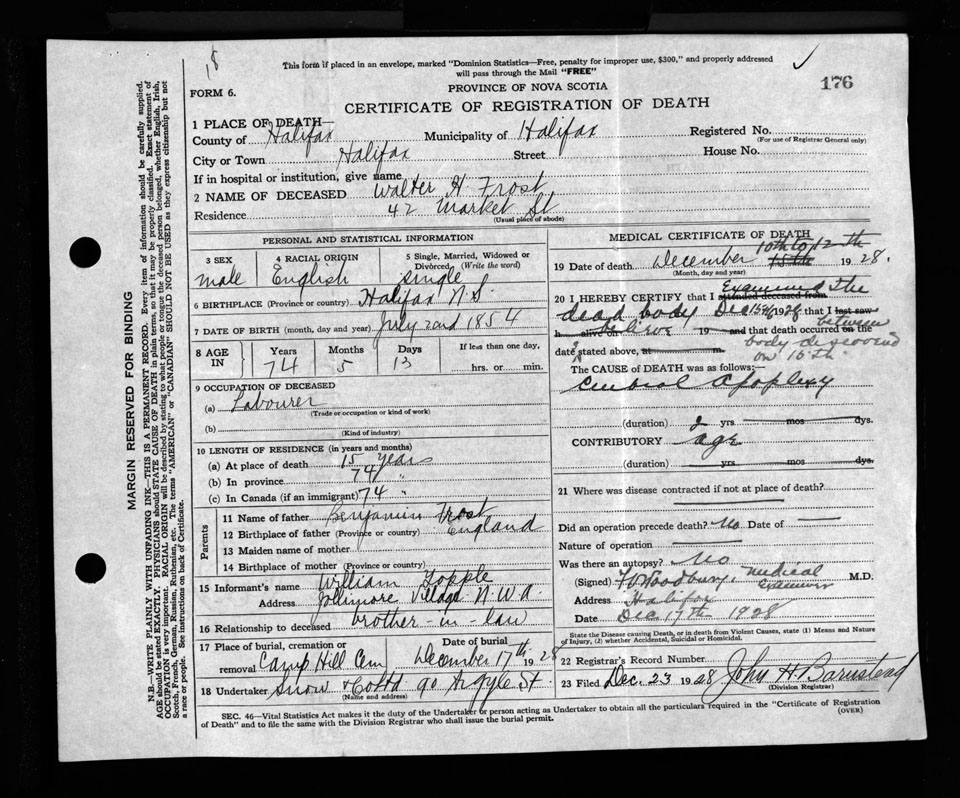 18
This form if placed in an envelope, marked "Dominion Statistics—Free, penalty for improper use, $300," and properly addressed
will pass through the Mail "FREE"
176
FORM 6.
PROVINCE OF NOVA SCOTIA
CERTIFICATE OF REGISTRATION OF DEATH
1 PLACE OF DEATH—
County of Halifax Municipality of Halifax Registered No.
(For use of Registrar General only)
City or Town Halifax Street House No.
If in hospital or institution, give name
2 NAME OF DECEASED Walter H. Frost
Residence 42 Market St
(Usual place of abode)
PERSONAL AND STATISTICAL INFORMATION
3 SEX 4 RACIAL ORIGIN 5 Single, Married, Widowed or
Divorced, (Write the word)
male English single
6 BIRTHPLACE (Province or country) Halifax N.S.
7 DATE OF BIRTH (month, day and year) July 2nd 1854
8 AGE IN Years Months Days If less than one day,
74 5 13 hrs. or min.
9 OCCUPATION OF DECEASED
(a) Labourer
(Trade or occupation or kind of work)
(b)
(Kind of industry)
10 LENGTH OF RESIDENCE (in years and months)
(a) At place of death 15 years
(b) In province 74 "
(c) In Canada (if an immigrant) 74 "
Parents
11 Name of father Benjamin Frost
12 Birthplace of father (Province or country) England
13 Maiden name of mother
14 Birthplace of mother (Province or country)
15 Informant's name William Topple
Address Jollimore Village N.W.A.
16 Relationship to deceased brother-in-law
17 Place of burial, cremation or removal Camp Hill Cem Date of burial December 17th 1928
18 Undertaker Snow & Co Ltd 90 Argyle St
(Name and address)
MEDICAL CERTIFICATE OF DEATH
10th to 12th
19 Date of death December 15th 1928.
(Month, day and year)
Examined the
20 I HEREBY CERTIFY that I attended deceased from
dead body Dec 15th 1928 that I last saw
h alive on believe 19 and that death occurred on the between
date stated above, at m. body discovered
on 15th.
The CAUSE OF DEATH was as follows:—
Cerebral Apoplexy
(duration) 2 yrs mos dys.
CONTRIBUTORY age
(duration) yrs mos dys.
21 Where was disease contracted if not at place of death?
Did an operation precede death? No Date of
Nature of operation
Was there an autopsy? No
(Signed) Woodbury, Medical Examiner M.D.
Address Halifax
Date Dec 17th 1928
State the Disease causing Death, or in death from Violent Causes, state (1) Means and Nature
of Injury, (2) whether Accidental, Suicidal or Homicidal.
22 Registrar's Record Number
23 Filed Dec. 23 1928 John H. Barnstead
(Division Registrar)
SEC. 46—Vital Statistics Act makes it the duty of the Undertaker or person acting as Undertaker to obtain all the particulars required in the "Certificate of Registration
of Death" and to file the same with the Division Registrar who shall issue the burial permit.
(OVER)
MARGIN RESERVED FOR BINDING
N.B.—WRITE PLAINLY WITH UNFADING INK—THIS IS A PERMANENT RECORD. Every item of information should be carefully supplied.
AGE should be stated EXACTLY. PHYSICIANS should STATE CAUSE OF DEATH in plain terms, so that it may be properly classified. Exact statement of
OCCUPATION is very important. RACIAL ORIGIN will be described by stating to what people or tongue the deceased person belonged, whether English, Irish,
Scotch, French, German, Russian, Ruthenian, etc. The terms "AMERICAN" or "CANADIAN" SHOULD NOT BE USED as they express citizenship but not
a race or people. See instructions on back of Certificate.